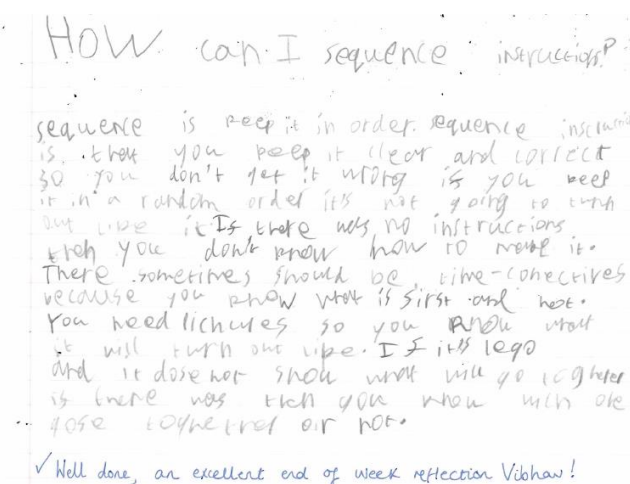 HOW can I sequence instructions?
sequence is keep it in order. sequence
is. that you keep it clear and correct
so you don't get it wrong if you keep
it in a random order it's not going to turn
out like it If there was no instructions
then you don't know how to make it.
There sometimes should be time-conectives
because you know what is first and next.
You need so you know what
it will turn out like. If it's lego
and it dose not show what will go together
if there was then you know wich one
gose or not.
✓ Well done, an excellent end of week reflection Vibhav!